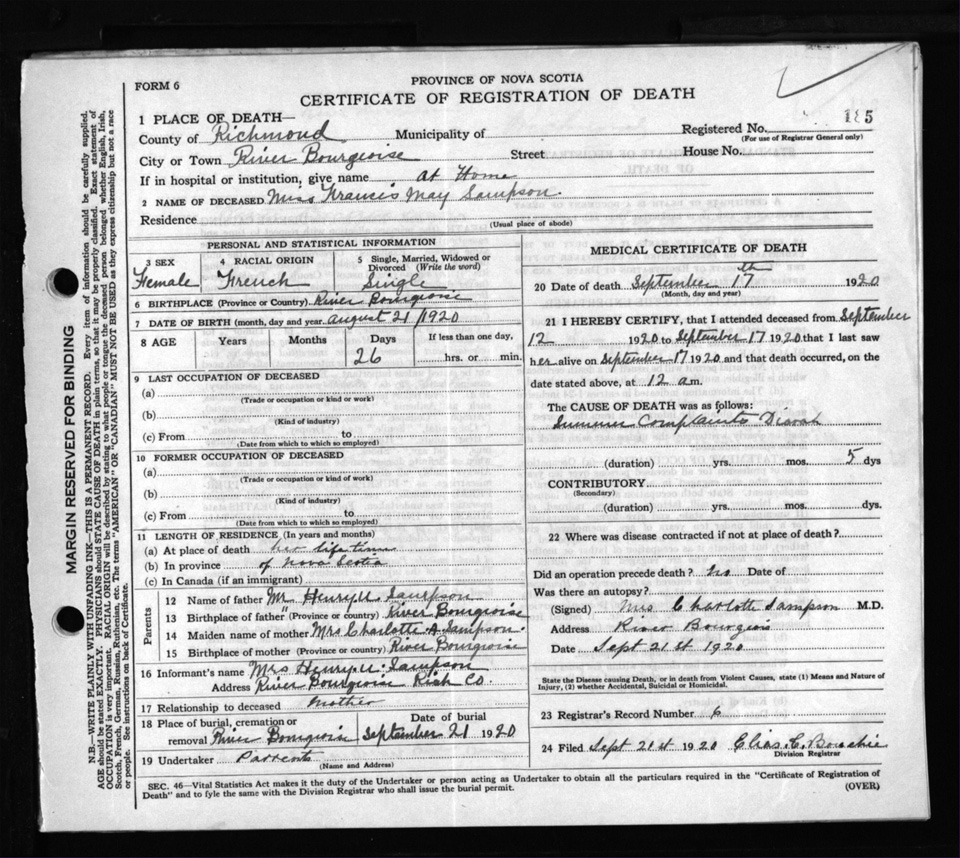 FORM 6
PROVINCE OF NOVA SCOTIA
CERTIFICATE OF REGISTRATION OF DEATH
1 PLACE OF DEATH—
County of Richmond Municipality of Registered No. 5
(For use of Registrar General only)
City or Town River Bourgeoise Street House No.
If in hospital or institution, give name at Home
2 NAME OF DECEASED Miss Francis May Sampson
Residence
(Usual place of abode)
PERSONAL AND STATISTICAL INFORMATION
3 SEX Female
4 RACIAL ORIGIN French
5 Single, Married, Widowed or Divorced (Write the word) Single
6 BIRTHPLACE (Province or Country) River Bourgoise
7 DATE OF BIRTH (month, day and year august 21/1920
8 AGE Years Months Days If less than one day,
26 hrs. or min.
9 LAST OCCUPATION OF DECEASED
(a)
(Trade or occupation or kind or work)
(b)
(Kind of industry)
(c) From to
(Date from which to which so employed)
10 FORMER OCCUPATION OF DECEASED
(a)
(Trade or occupation or kind of work)
(b)
(Kind of industry)
(c) From to
(Date from which to which so employed)
11 LENGTH OF RESIDENCE (In years and months)
(a) At place of death her life time
(b) In province of Nova Scotia
(c) In Canada (if an immigrant)
Parents
12 Name of father Mr Henry Sampson
13 Birthplace of father (Province or Country) River Bourgoise
14 Maiden name of mother Mrs Charlotte A Sampson.
15 Birthplace of mother (Province or country) River Bourgoise
16 Informant's name Mrs Henry Sampson
Address River Bourgoise Rich Co.
17 Relationship to deceased Mother
18 Place of burial, cremation or removal River Bourgoise
Date of burial September 21 1920
19 Undertaker Parrents
(Name and Address)
MEDICAL CERTIFICATE OF DEATH
20 Date of death September 17th 1920
(Month, day and year)
21 I HEREBY CERTIFY, that I attended deceased from September
12 1920 to September 17 1920 that I last saw
her alive on September 17 1920 and that death occurred, on the
date stated above, at 12 a.m.
The CAUSE OF DEATH was as follows:
Summer Complaints
(duration) yrs. mos. 5 dys
CONTRIBUTORY
(Secondary)
(duration) yrs. mos. dys.
22 Where was disease contracted if not at place of death?
Did an operation precede death? no Date of
Was there an autopsy?
(Signed) Mrs Charlotte Sampson M.D.
Address River Bourgois
Date Sept 21st 1920
State the Disease causing Death, or in death from Violent Causes, state (1) Means and Nature of
Injury, (2) whether Accidental, Suicidal or Homicidal.
23 Registrar's Record Number 6
24 Filed Sept 21st 1920 Elias C. Bouchie
Division Registrar
SEC. 46—Vital Statistics Act makes it the duty of the Undertaker or person acting as Undertaker to obtain all the particulars required in the "Certificate of Registration of
Death" and to fyle the same with the Division Registrar who shall issue the burial permit. (OVER)
MARGIN RESERVED FOR BINDING
N.B.—WRITE PLAINLY WITH UNFADING INK—THIS IS A PERMANENT RECORD. Every item of information should be carefully supplied.
AGE should be stated EXACTLY. PHYSICIANS should STATE CAUSE OF DEATH in plain terms, so that it may be properly classified. Exact statement of
OCCUPATION is very important. RACIAL ORIGIN will be described by stating to what people or tongue the deceased person belonged whether English, Irish,
Scotch, French, German, Russian, Ruthenian, etc. The terms "AMERICAN" OR "CANADIAN" MUST NOT BE USED as they express citizenship but not a race
or people. See instructions on back of Certificate.